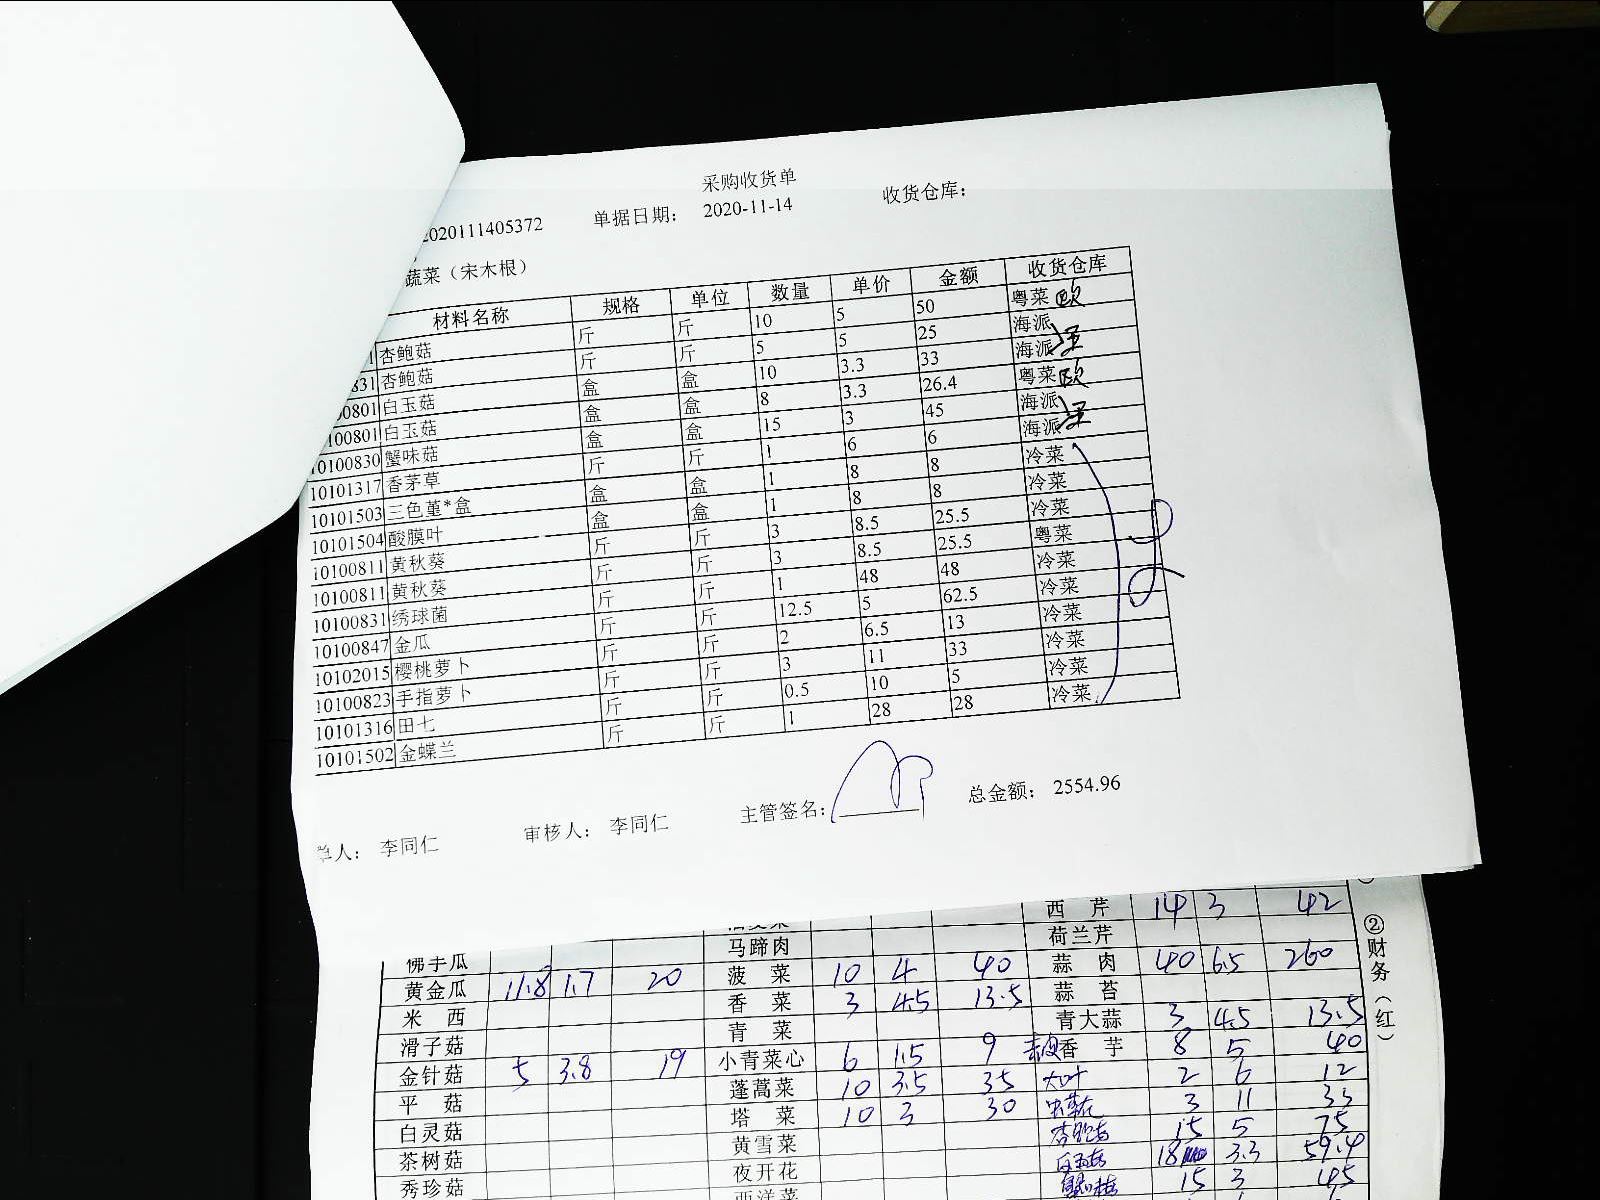 采购收货单
2020111405372 单据日期： 2020-11-14 收货仓库：
蔬菜（宋木根）
材料名称 规格 单位 数量 单价 金额 收货仓库
1 杏鲍菇 斤 斤 10 5 50 粤菜 欧
831 杏鲍菇 斤 斤 5 5 25 海派
00801 白玉菇 盒 盒 10 3.3 33 海派
100801 白玉菇 盒 盒 8 3.3 26.4 粤菜 欧
10100830 蟹味菇 盒 盒 15 3 45 海派
10101317 香茅草 斤 斤 1 6 6 海派
10101503 三色堇*盒 盒 盒 1 8 8 冷菜
10101504 酸膜叶 盒 盒 1 8 8 冷菜
10100811 黄秋葵 斤 斤 3 8.5 25.5 冷菜
10100811 黄秋葵 斤 斤 3 8.5 25.5 粤菜
10100831 绣球菌 斤 斤 1 48 48 冷菜
10100847 金瓜 斤 斤 12.5 5 62.5 冷菜
10102015 樱桃萝卜 斤 斤 2 6.5 13 冷菜
10100823 手指萝卜 斤 斤 3 11 33 冷菜
10101316 田七 斤 斤 0.5 10 5 冷菜
10101502 金蝶兰 斤 斤 1 28 28 冷菜
单人： 李同仁 审核人： 李同仁 主管签名： 总金额： 2554.96
西芹 14 3 42
佛手瓜 马蹄肉 荷兰芹
黄金瓜 11.8 1.7 20 菠菜 10 4 40 蒜肉 40 6.5 260
米西 香菜 3 4.5 13.5 蒜苔
滑子菇 青菜 青大蒜 3 4.5 13.5
金针菇 5 3.8 19 小青菜心 6 1.5 9 香芋 8 5 40
平菇 蓬蒿菜 10 3.5 35 大叶 2 6 12
白灵菇 塔菜 10 3 30 3 11 33
茶树菇 黄雪菜 杏鲍菇 15 5 75
秀珍菇 夜开花 白玉菇 18 3.3 59.4
西洋菜 蟹味菇 15 3 45
②财务（红）